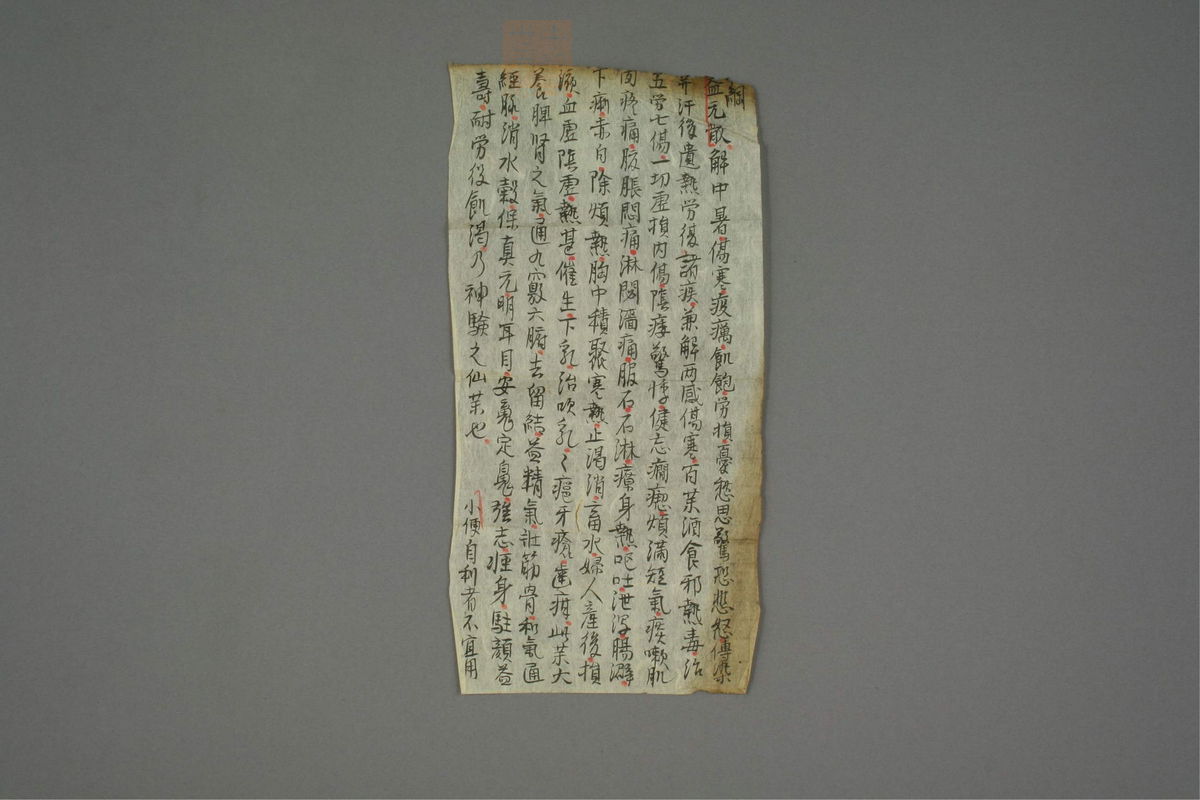 綱
益元散解中暑傷寒疫癘飢飽労損憂愁思驚恐悲怒傳染
并汗後遺熱労復諸疾兼解両感傷寒百薬酒食邪熱毒治
五労七傷一切虚損内傷陰痿驚悸健忘癇瘛煩滿短氣痰嗽肌
肉疼痛腹脹悶痛淋閟濇痛服石石淋療身熱呕吐泄泻腸澼
下痢赤白除煩熱胸中積聚寒熱止渴消畜水婦人産後損
液血虚陰虚熱甚催生下乳治吹乳々癰牙瘡齒疳此薬大
養脾腎之氣通九竅六腑去留結益精氣壮筋骨和氣通
經脉消水穀保真元明耳目安魂定魄強志軽身駐顔益
壽耐労役飢渴乃神驗之仙薬也
小便自利者不宜用